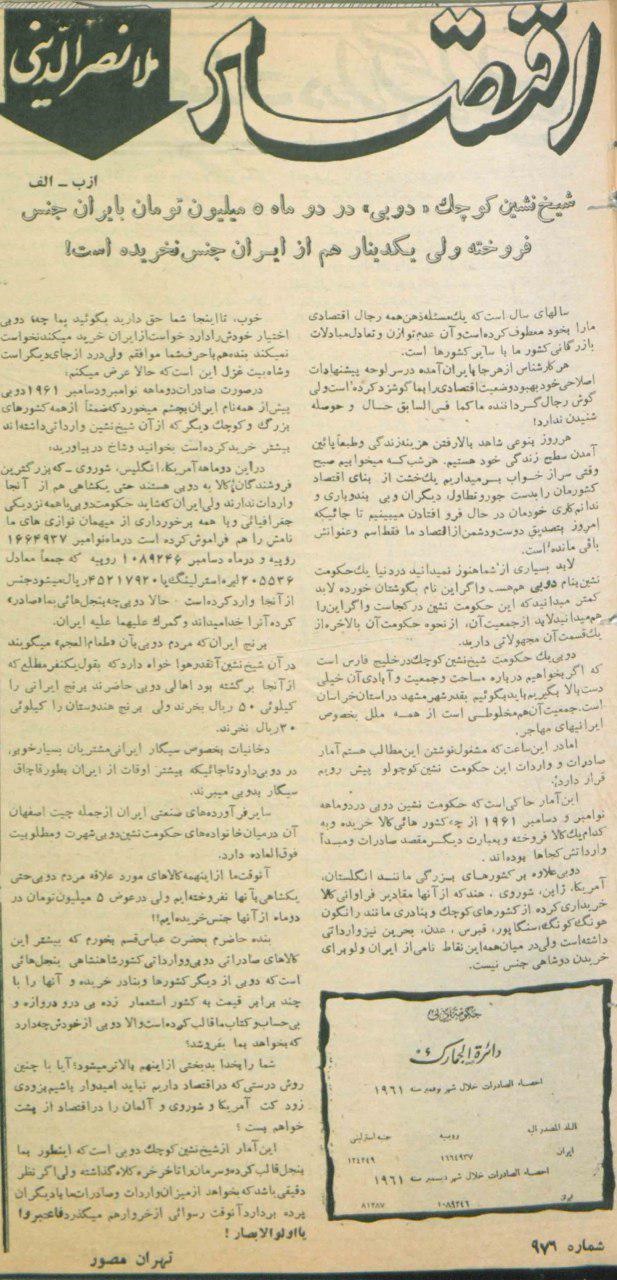 اقتصاد
ملا نصرالدینی
از ب ـ الف
شیخ نشین کوچك « دوبی» در دو ماه ۵ میلیون تومان بایران جنس
فروخته ولی یکدینار هم از ایران جنس نخریده است!
سالهای سال است که یك مسئله ذهن همه رجال اقتصادی
ما را بخود معطوف کرده است و آن عدم توازن و تعادل مبادلات
بازرگانی کشور ما با سایر کشورها است.
هر کارشناس از هر جا بایران آمده در سر لوحه پیشنهادات
اصلاحی خود بهبود وضعیت اقتصادی را بما گوشزد کرده است ولی
گوش رجال گرداننده ما کما فی السابق حال و حوصله
شنیدن ندارد!
هر روز بنوعی شاهد بالا رفتن هزینه زندگی و طبعاً پائین
آمدن سطح زندگی خود هستیم. هر شب که میخوابیم صبح
وقتی سر از خواب بر میداریم یك خشت از بنای اقتصاد
کشورمان را بدست جور و تطاول دیگران و بی بندوباری و
ندانم کاری خودمان در حال فرو افتادن میبینیم تا جائیکه
امروز بتصدیق دوست و دشمن از اقتصاد ما فقط اسم و عنوانش
باقی مانده است.
لابد بسیاری از شما هنوز نمیدانید در دنیا یك حکومت
نشین بنام دوبی هم هست و اگر این نام بگوشتان خورده لابد
کمتر میدانید که این حکومت نشین در کجاست و اگر این را
هم میدانید لابد از جمعیت آن، از نحوه حکومت آن بالاخره از
یك قسمت آن مجهولاتی دارید.
دوبی یك حکومت شیخ نشین کوچك در خلیج فارس است
که اگر بخواهیم در باره مساحت و جمعیت و آبادی آن خیلی
دست بالا بگیریم باید بگوئیم بقدر شهر مشهد در استان خراسان
است. جمعیت آن هم مخلوطی است از همه ملل بخصوص
ایرانیهای مهاجر.
اما در این ساعت که مشغول نوشتن این مطالب هستم آمار
صادرات و واردات این حکومت نشین کوچولو پیش رویم
قرار دارد:
این آمار حاکی است که حکومت نشین دوبی در دوماهه
نوامبر و دسامبر ۱۹۶۱ از چه کشور هائی کالا خریده و به
کدام یك کالا فروخته و بعبارت دیگر مقصد صادرات و مبدأ
وارداتش کجاها بوده اند.
دوبی علاوه بر کشورهای بزرگی مانند انگلستان،
آمریکا، ژاپن، شوروی، هند که از آنها مقادیر فراوانی کالا
خریداری کرده از کشورهای کوچك و بنادری مانند رانگون
هونگ کونگ، سنگاپور، قبرس، عدن، بحرین نیز وارداتی
داشته است ولی در میان همه این نقاط نامی از ایران ولو برای
خریدن دوشاهی جنس نیست.
دائرة الجمارك
احصاء الصادرات خلال شهر نوفمبر سنه ۱۹۶۱
البلد المصدر الیه
روبیه
جنیه استرلینی
ایران
۱۶۶۴۹۳۷
۱۲۴۲۴۹
احصاء الصادرات خلال شهر دیسمبر سنه ۱۹۶۱
ایران
۱۰۸۹۲۴۶
۸۱۲۸۷
خوب، تا اینجا شما حق دارید بگوئید بما چه؟ دوبی
اختیار خودش را دارد خواست از ایران خرید میکند نخواست
نمیکند بنده هم با حرف شما موافقم ولی درد از جای دیگر است
و شاه بیت غزل این است که حالا عرض میکنم:
در صورت صادرات دوماهه نوامبر و دسامبر ۱۹۶۱ دوبی
پیش از همه نام ایران بچشم میخورد که ضمناً از همه کشورهای
بزرگ و کوچك دیگر که از آن شیخ نشین وارداتی داشته اند
بیشتر خرید کرده است بخوانید و شاخ در بیاورید:
در این دوماهه آمریکا، انگلیس، شوروی ـ که بزرگترین
فروشندگان کالا به دوبی هستند حتی یکشاهی هم از آنجا
واردات ندارند ولی ایران که شاید حکومت دوبی با همه نزدیکی
جغرافیائی و با همه برخورداری از میهمان نوازی های ما
نامش را هم فراموش کرده است در ماه نوامبر ۱۶۶۴۹۳۷
روپیه و در ماه دسامبر ۱۰۸۹۲۴۶ روپیه که جمعاً معادل
۲۰۵۵۳۶ لیره استرلینگ یا ۴۵۲۱۷۹۲۰ ریال میشود جنس
از آنجا وارد کرده است. حالا دوبی چه بنجل هائی بما «صادر»
کرده آنرا خدا میداند و گمرك علیهما علیه ایران.
برنج ایران که مردم دوبی بآن «طعام العجم» میگویند
در آن شیخ نشین آنقدر هوا خواه دارد که بقول یکنفر مطلع که
از آنجا برگشته بود اهالی دوبی حاضرند برنج ایرانی را
کیلوئی ۵۰ ریال بخرند ولی برنج هندوستان را کیلوئی
۳۰ ریال نخرند.
دخانیات بخصوص سیگار ایرانی مشتریان بسیار خوبی
در دوبی دارد تا جائیکه بیشتر اوقات از ایران بطور قاچاق
سیگار بدوبی میبرند.
سایر فرآورده های صنعتی ایران از جمله چیت اصفهان
آن در میان خانواده های حکومت نشین دوبی شهرت و مطلوبیت
فوق العاده دارد.
آنوقت ما از اینهمه کالاهای مورد علاقه مردم دوبی حتی
یکشاهی بآنها نفروخته ایم ولی در عوض ۵ میلیون تومان در
دوماه از آنها جنس خریده ایم!!
بنده حاضرم بحضرت عباس قسم بخورم که بیشتر این
کالاهای صادراتی دوبی و وارداتی کشور شاهنشاهی بنجل هائی
است که دوبی از دیگر کشورها و بنادر خریده و آنها را با
چند برابر قیمت به کشور استعمار زده بی در و دروازه و
بی حساب و کتاب ما قالب کرده است والا دوبی از خودش چه دارد
که بخواهد بما بفروشد؟
شما را بخدا بدبختی از اینهم بالاتر میشود؟ آیا با چنین
روش درستی که در اقتصاد داریم نباید امیدوار باشیم بزودی
زود کت آمریکا و شوروی و آلمان را در اقتصاد از پشت
خواهیم بست؟
این آمار از شیخ نشین کوچك دوبی است که اینطور بما
بنجل قالب کرده و سرمان را تا خرخره کلاه گذاشته ولی اگر نظر
دقیقی باشد که بخواهد از میزان واردات و صادرات ما با دیگران
پرده بردارد آنوقت رسوائی از خروار هم میگذرد فاعتبروا
یا اولو الابصار!
تهران مصور
شماره ۹۷۶